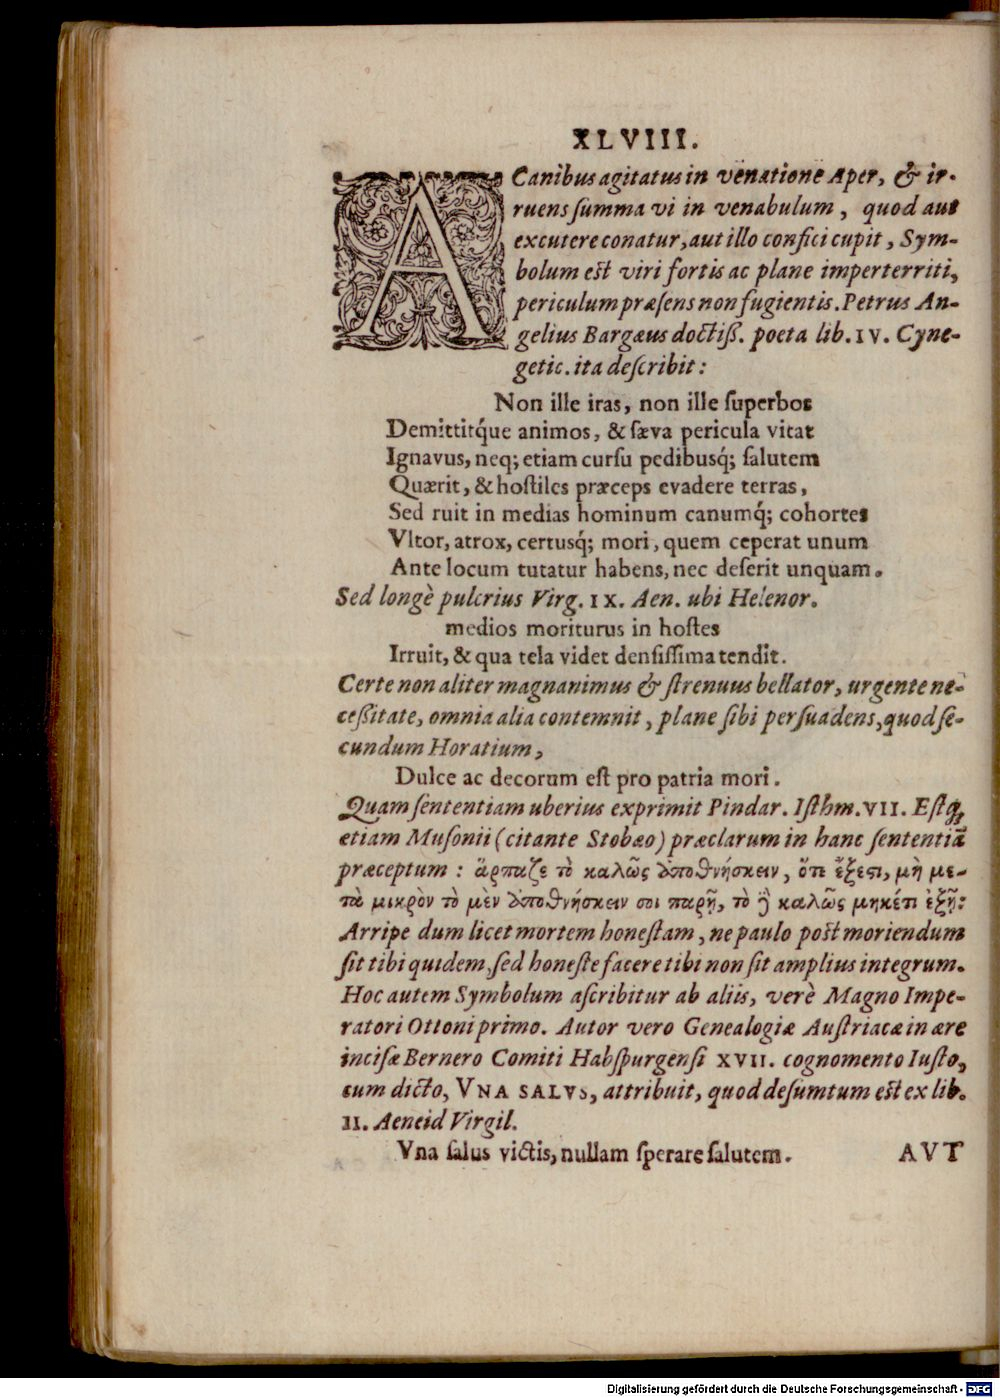 XLVIII.
A Canibus agitatus in venatione Aper, & ir-
ruens ſumma vi in venabulum, quod aut
excutere conatur, aut illo confici cupit, Sym-
bolum eſt viri fortis ac plane imperterriti,
periculum præſens non fugientis. Petrus An-
gelius Bargæus doctiß. poeta lib. IV. Cyne-
getic. ita deſcribit:
Non ille iras, non ille ſuperbos
Demittitq́ue animos, & ſæva pericula vitat
Ignavus, neq; etiam curſu pedibusq́; ſalutem
Quærit, & hoſtiles præceps evadere terras,
Sed ruit in medias hominum canumq́; cohortes
Vltor, atrox, certusq́; mori, quem ceperat unum
Ante locum tutatur habens, nec deſerit unquam.
Sed longè pulcrius Virg. IX. Aen. ubi Helenor.
medios moriturus in hoſtes
Irruit, & qua tela videt denſiſſima tendit.
Certe non aliter magnanimus & ſtrenuus bellator, urgente ne-
ceßitate, omnia alia contemnit, plane ſibi perſuadens, quod ſe-
cundum Horatium,
Dulce ac decorum eſt pro patria mori.
Quam ſententiam uberius exprimit Pindar. Iſthm. VII. Eſtq́;
etiam Muſonii (citante Stobæo) præclarum in hanc ſententiā
præceptum: ἅρπαζε τὸ καλῶς ἀποθνήσκειν, ὅτι ἔξεστι, μὴ με-
τὰ μικρὸν τὸ μὲν ἀποθνήσκειν σοι παρῇ, τὸ δὲ καλῶς μηκέτι ἐξῇ:
Arripe dum licet mortem honeſtam, ne paulo poſt moriendum
ſit tibi quidem, ſed honeſte facere tibi non ſit amplius integrum.
Hoc autem Symbolum aſcribitur ab aliis, verè Magno Impe-
ratori Ottoni primo. Autor vero Genealogiæ Auſtriacæ in ære
inciſæ Bernero Comiti Habſpurgenſi XVII. cognomento Iuſto,
cum dicto, VNA SALVS, attribuit, quod deſumtum eſt ex lib.
II. Aeneid Virgil.
Vna ſalus victis, nullam ſperare ſalutem. AVT
Digitalisierung gefördert durch die Deutsche Forschungsgemeinschaft - DFG